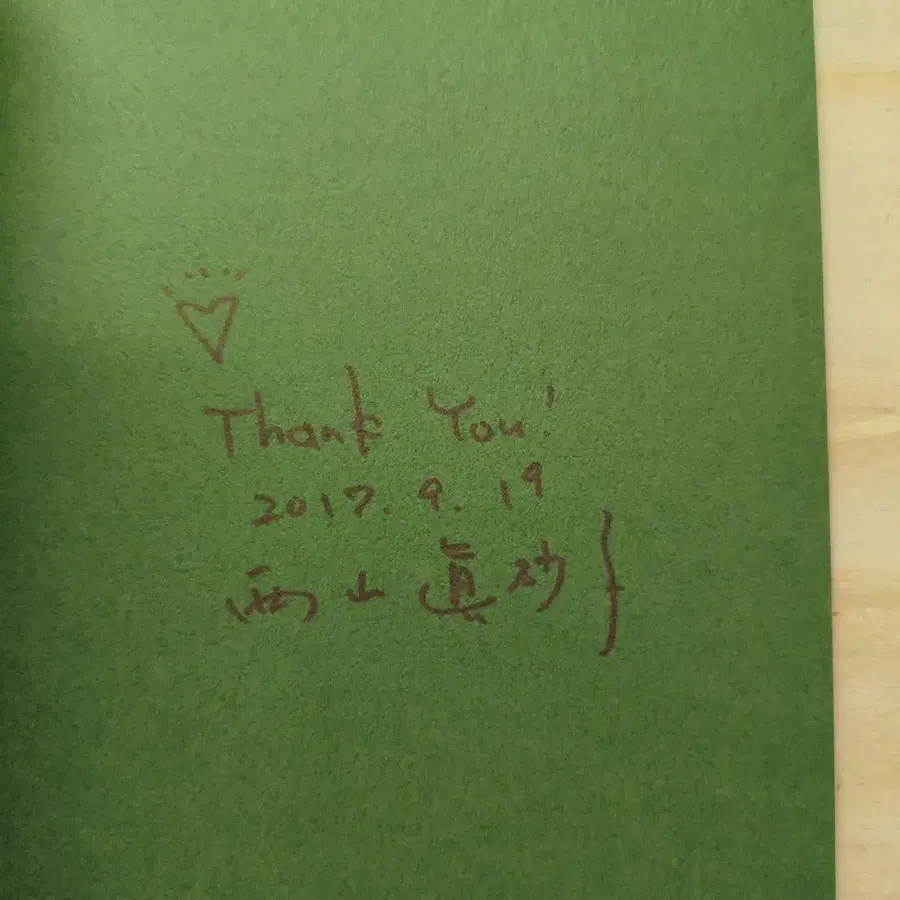 Thank You!
2017.9.19
西山眞砂子